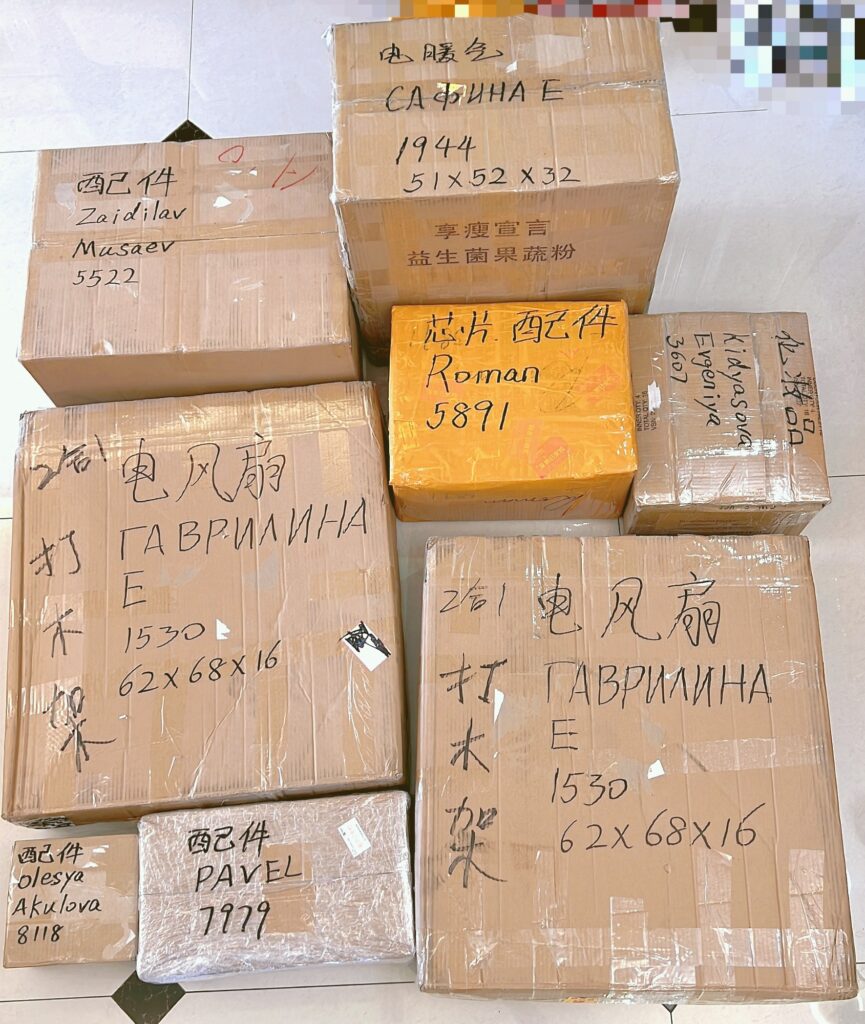 电暖气
САФИНА Е
1944
51×52×32
享瘦宣言
益生菌果蔬粉
配件
Zaidilav
Musaev
5522
芯片配件
Roman
5891
化妆品
Kidyasova
Evgeniya
3607
2合1
打木架
电风扇
ГАВРИЛИНА
Е
1530
62×68×16
2合1
打木架
电风扇
ГАВРИЛИНА
Е
1530
62×68×16
配件
olesya
Akulova
8118
配件
PAVEL
7979